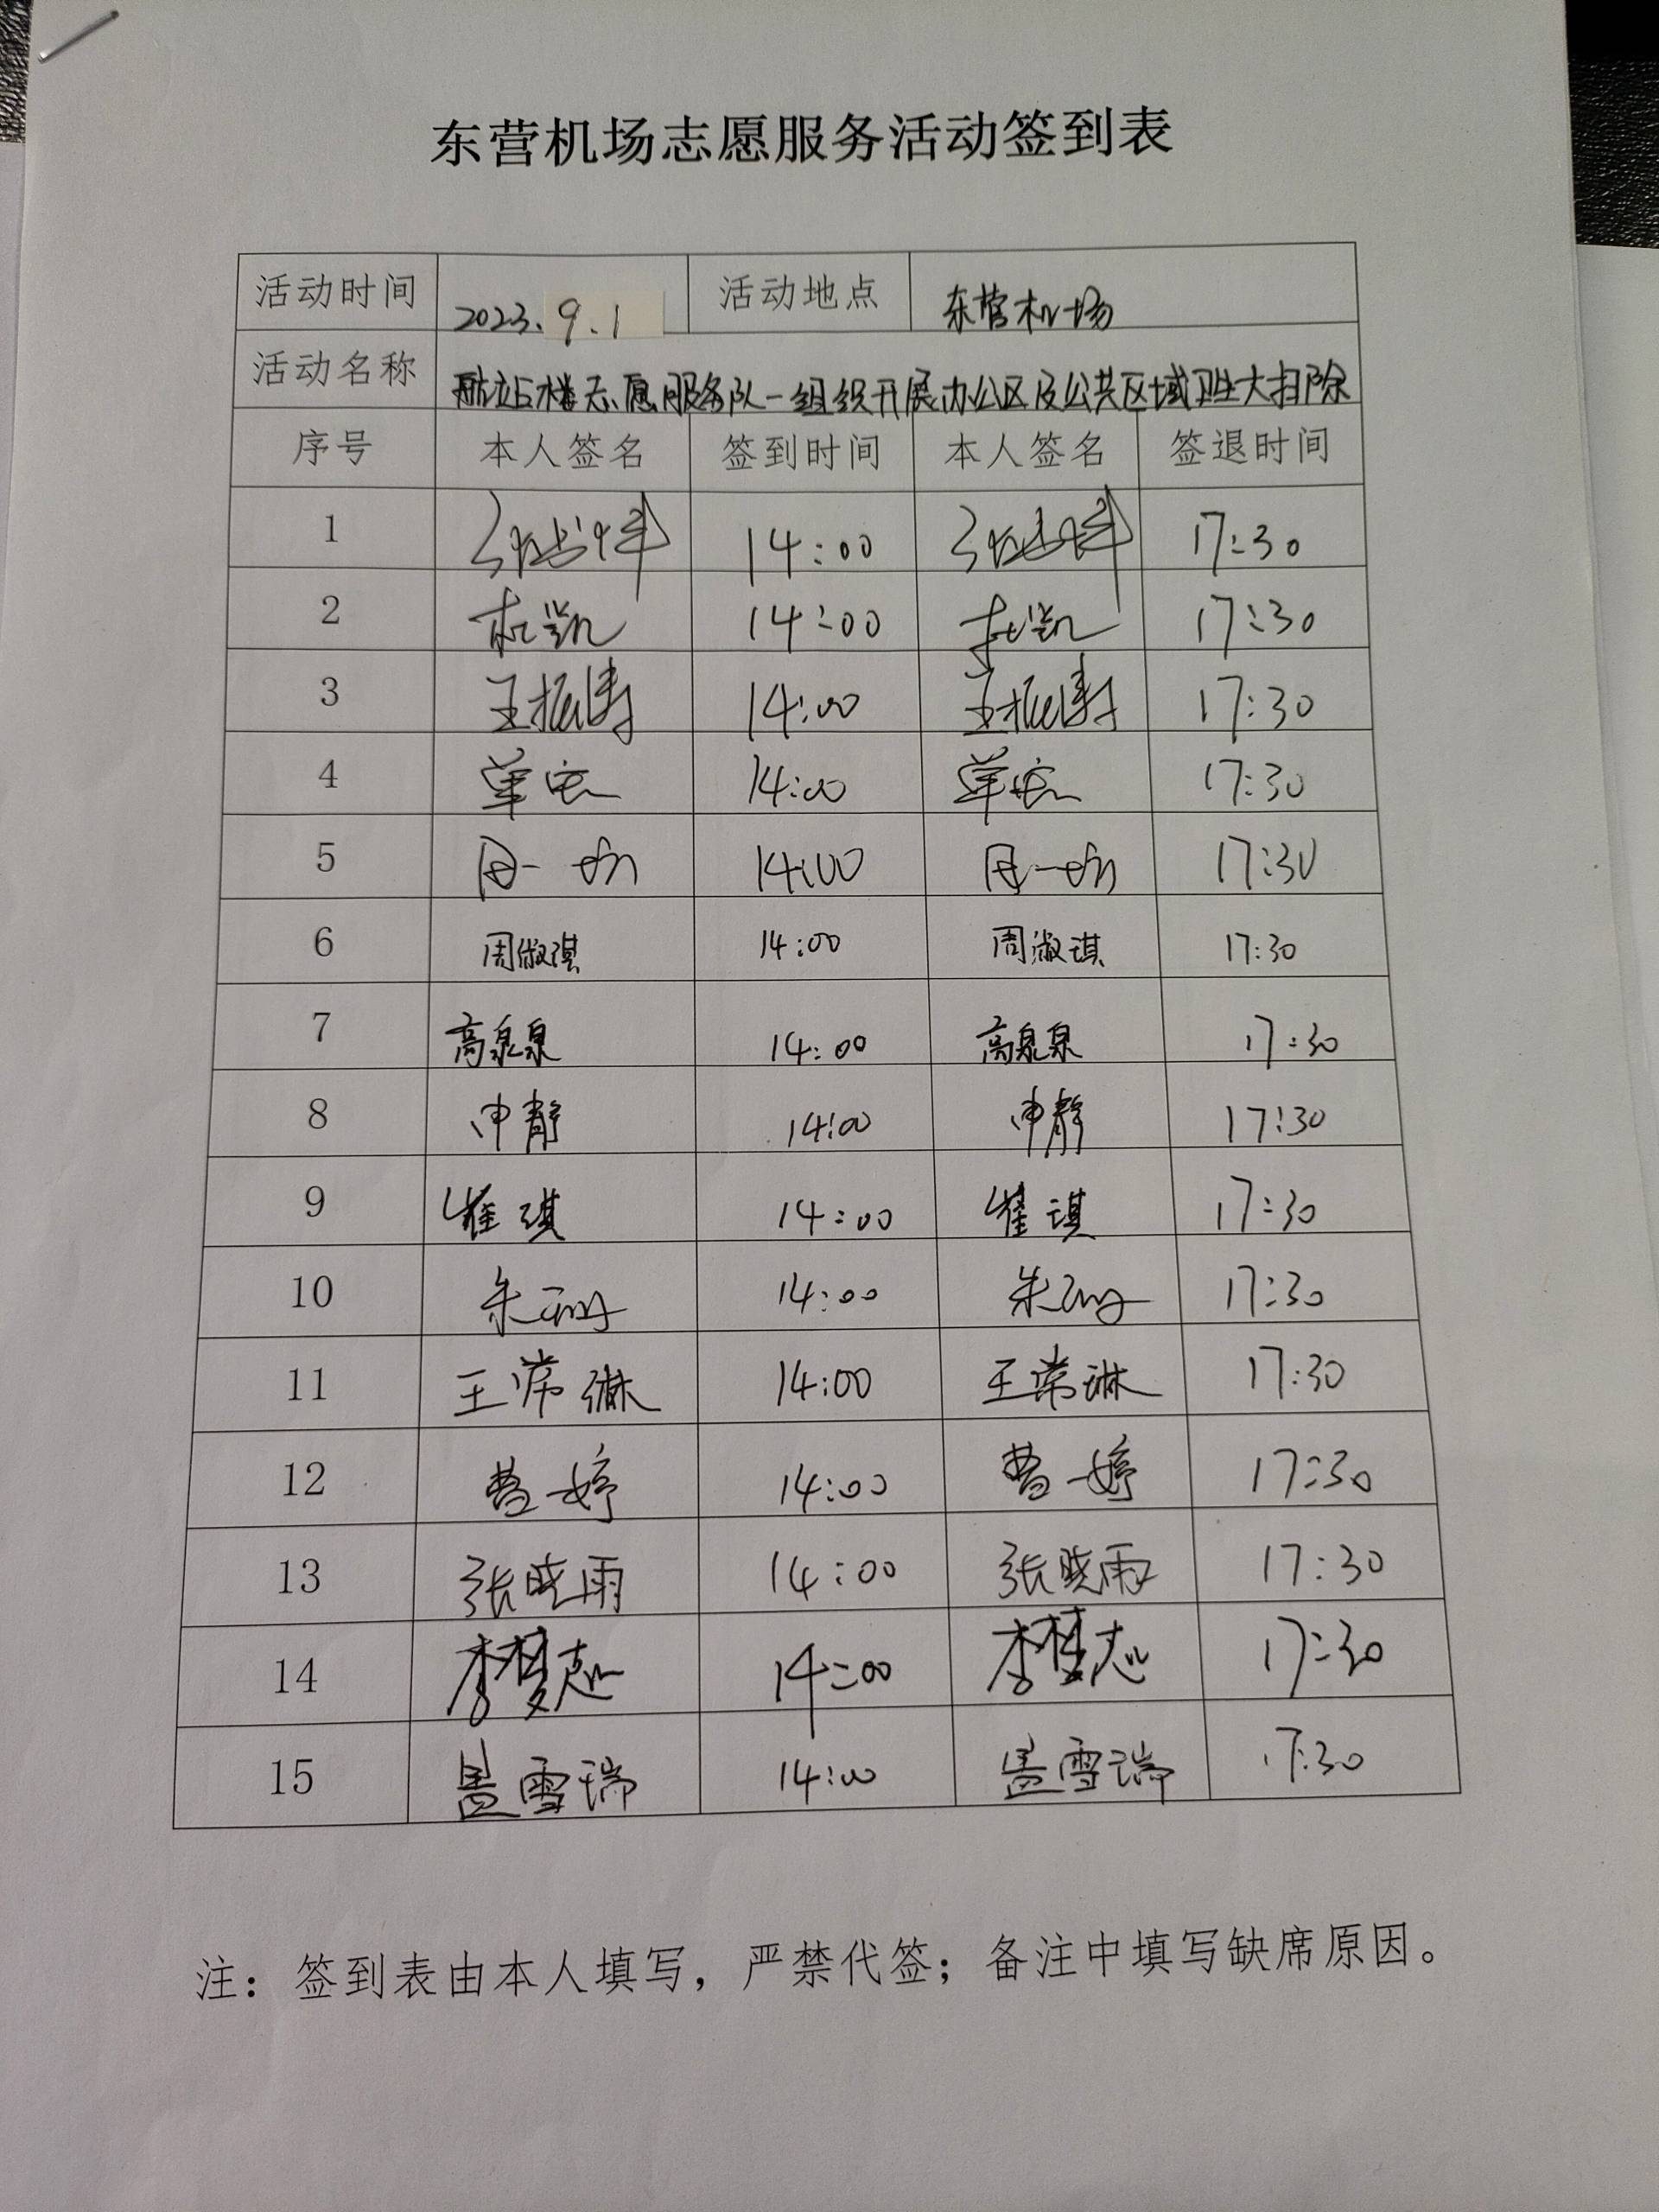 东营机场志愿服务活动签到表
活动时间 2023.9.1 活动地点 东营机场
活动名称 航站楼志愿服务队一组织开展办公区及公共区域卫生大扫除
序号 本人签名 签到时间 本人签名 签退时间
1 14:00 17:30
2 杜凯 14:00 杜凯 17:30
3 王振涛 14:00 王振涛 17:30
4 单宏 14:00 单宏 17:30
5 14:00 17:30
6 周淑琪 14:00 周淑琪 17:30
7 高泉泉 14:00 高泉泉 17:30
8 申静 14:00 申静 17:30
9 崔琪 14:00 崔琪 17:30
10 朱 14:00 朱 17:30
11 王常琳 14:00 王常琳 17:30
12 曹一婷 14:00 曹一婷 17:30
13 张晓雨 14:00 张晓雨 17:30
14 李梦志 14:00 李梦志 17:30
15 盖雪瑞 14:00 盖雪瑞 17:30
注：签到表由本人填写，严禁代签；备注中填写缺席原因。